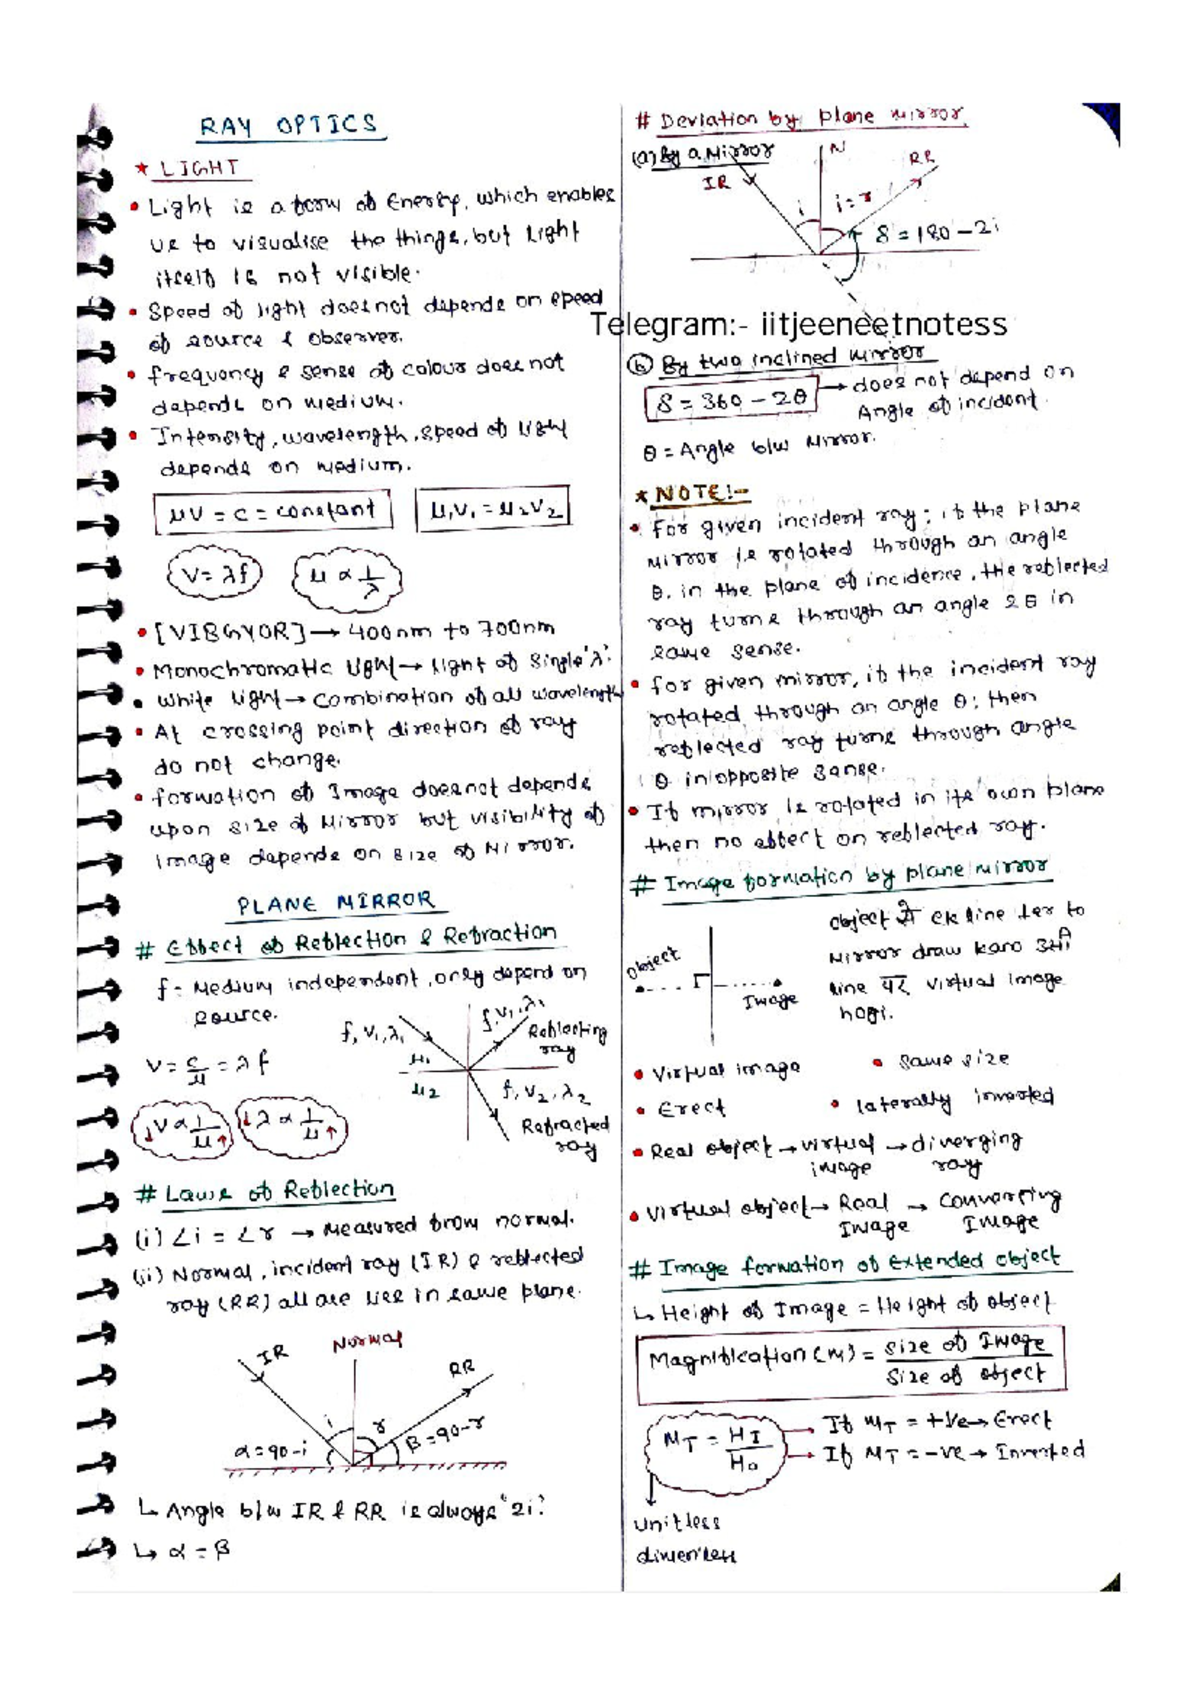 RAY OPTICS
★ LIGHT
• Light is a form of Energy, which enables
us to visualise the things, but light
itself is not visible.
• Speed of light does not depends on speed
of source & observer.
• frequency & sense of colour does not
depends on medium.
• Intensity, wavelength, speed of light
depends on medium.
μV = C = constant
μ₁V₁ = μ₂V₂
V = λf
μ ∝ 1/λ
• [VIBGYOR] → 400nm to 700nm
• Monochromatic light → light of single 'λ'.
• White light → combination of all wavelength
• At crossing point direction of ray
do not change.
• formation of Image does not depends
upon size of Mirror but visibility of
image depends on size of Mirror.
PLANE MIRROR
# Effect of Reflection & Refraction
f = Medium independent, only depend on
source.
V = C/μ = λf
↓V ∝ 1/μ↑
↓λ ∝ 1/μ↑
f, V₁, λ₁
f, V₁, λ₁
Reflecting
ray
μ₁
μ₂
f, V₂, λ₂
Refracted
ray
# Laws of Reflection
(i) ∠i = ∠r → Measured from normal.
(ii) Normal, incident ray (IR) & reflected
ray (RR) all are lies in same plane.
IR
Normal
RR
i
r
α = 90-i
β = 90-r
↳ Angle b/w IR & RR is always "2i"
↳ α = β
# Deviation by plane mirror
(a) By a Mirror
N
IR
RR
i
i = r
δ = 180 - 2i
Telegram:- iitjeeneetnotess
(b) By two inclined mirror
δ = 360 - 2θ → does not depend on
Angle of incident.
θ = Angle b/w Mirror.
★ NOTE:-
• For given incident ray; if the plane
mirror is rotated through an angle
θ, in the plane of incidence, the reflected
ray turns through an angle 2θ in
same sense.
• for given mirror, if the incident ray
rotated through an angle θ; then
reflected ray turns through angle
θ in opposite sense.
• If mirror is rotated in its own plane
then no effect on reflected ray.
# Image formation by plane mirror
Object
Image
object से ek line ⊥er to
Mirror draw karo उसी
line पर virtual image
hogi.
• Virtual image
• Same size
• Erect
• laterally inverted
• Real object → virtual → diverging
image ray
• Virtual object → Real → Converging
Image Image
# Image formation of extended object
↳ Height of Image = Height of object
Magnification (m) = Size of Image / Size of object
M_T = H_I / H_o
→ If M_T = +ve → Erect
→ If M_T = -ve → Inverted
unitless